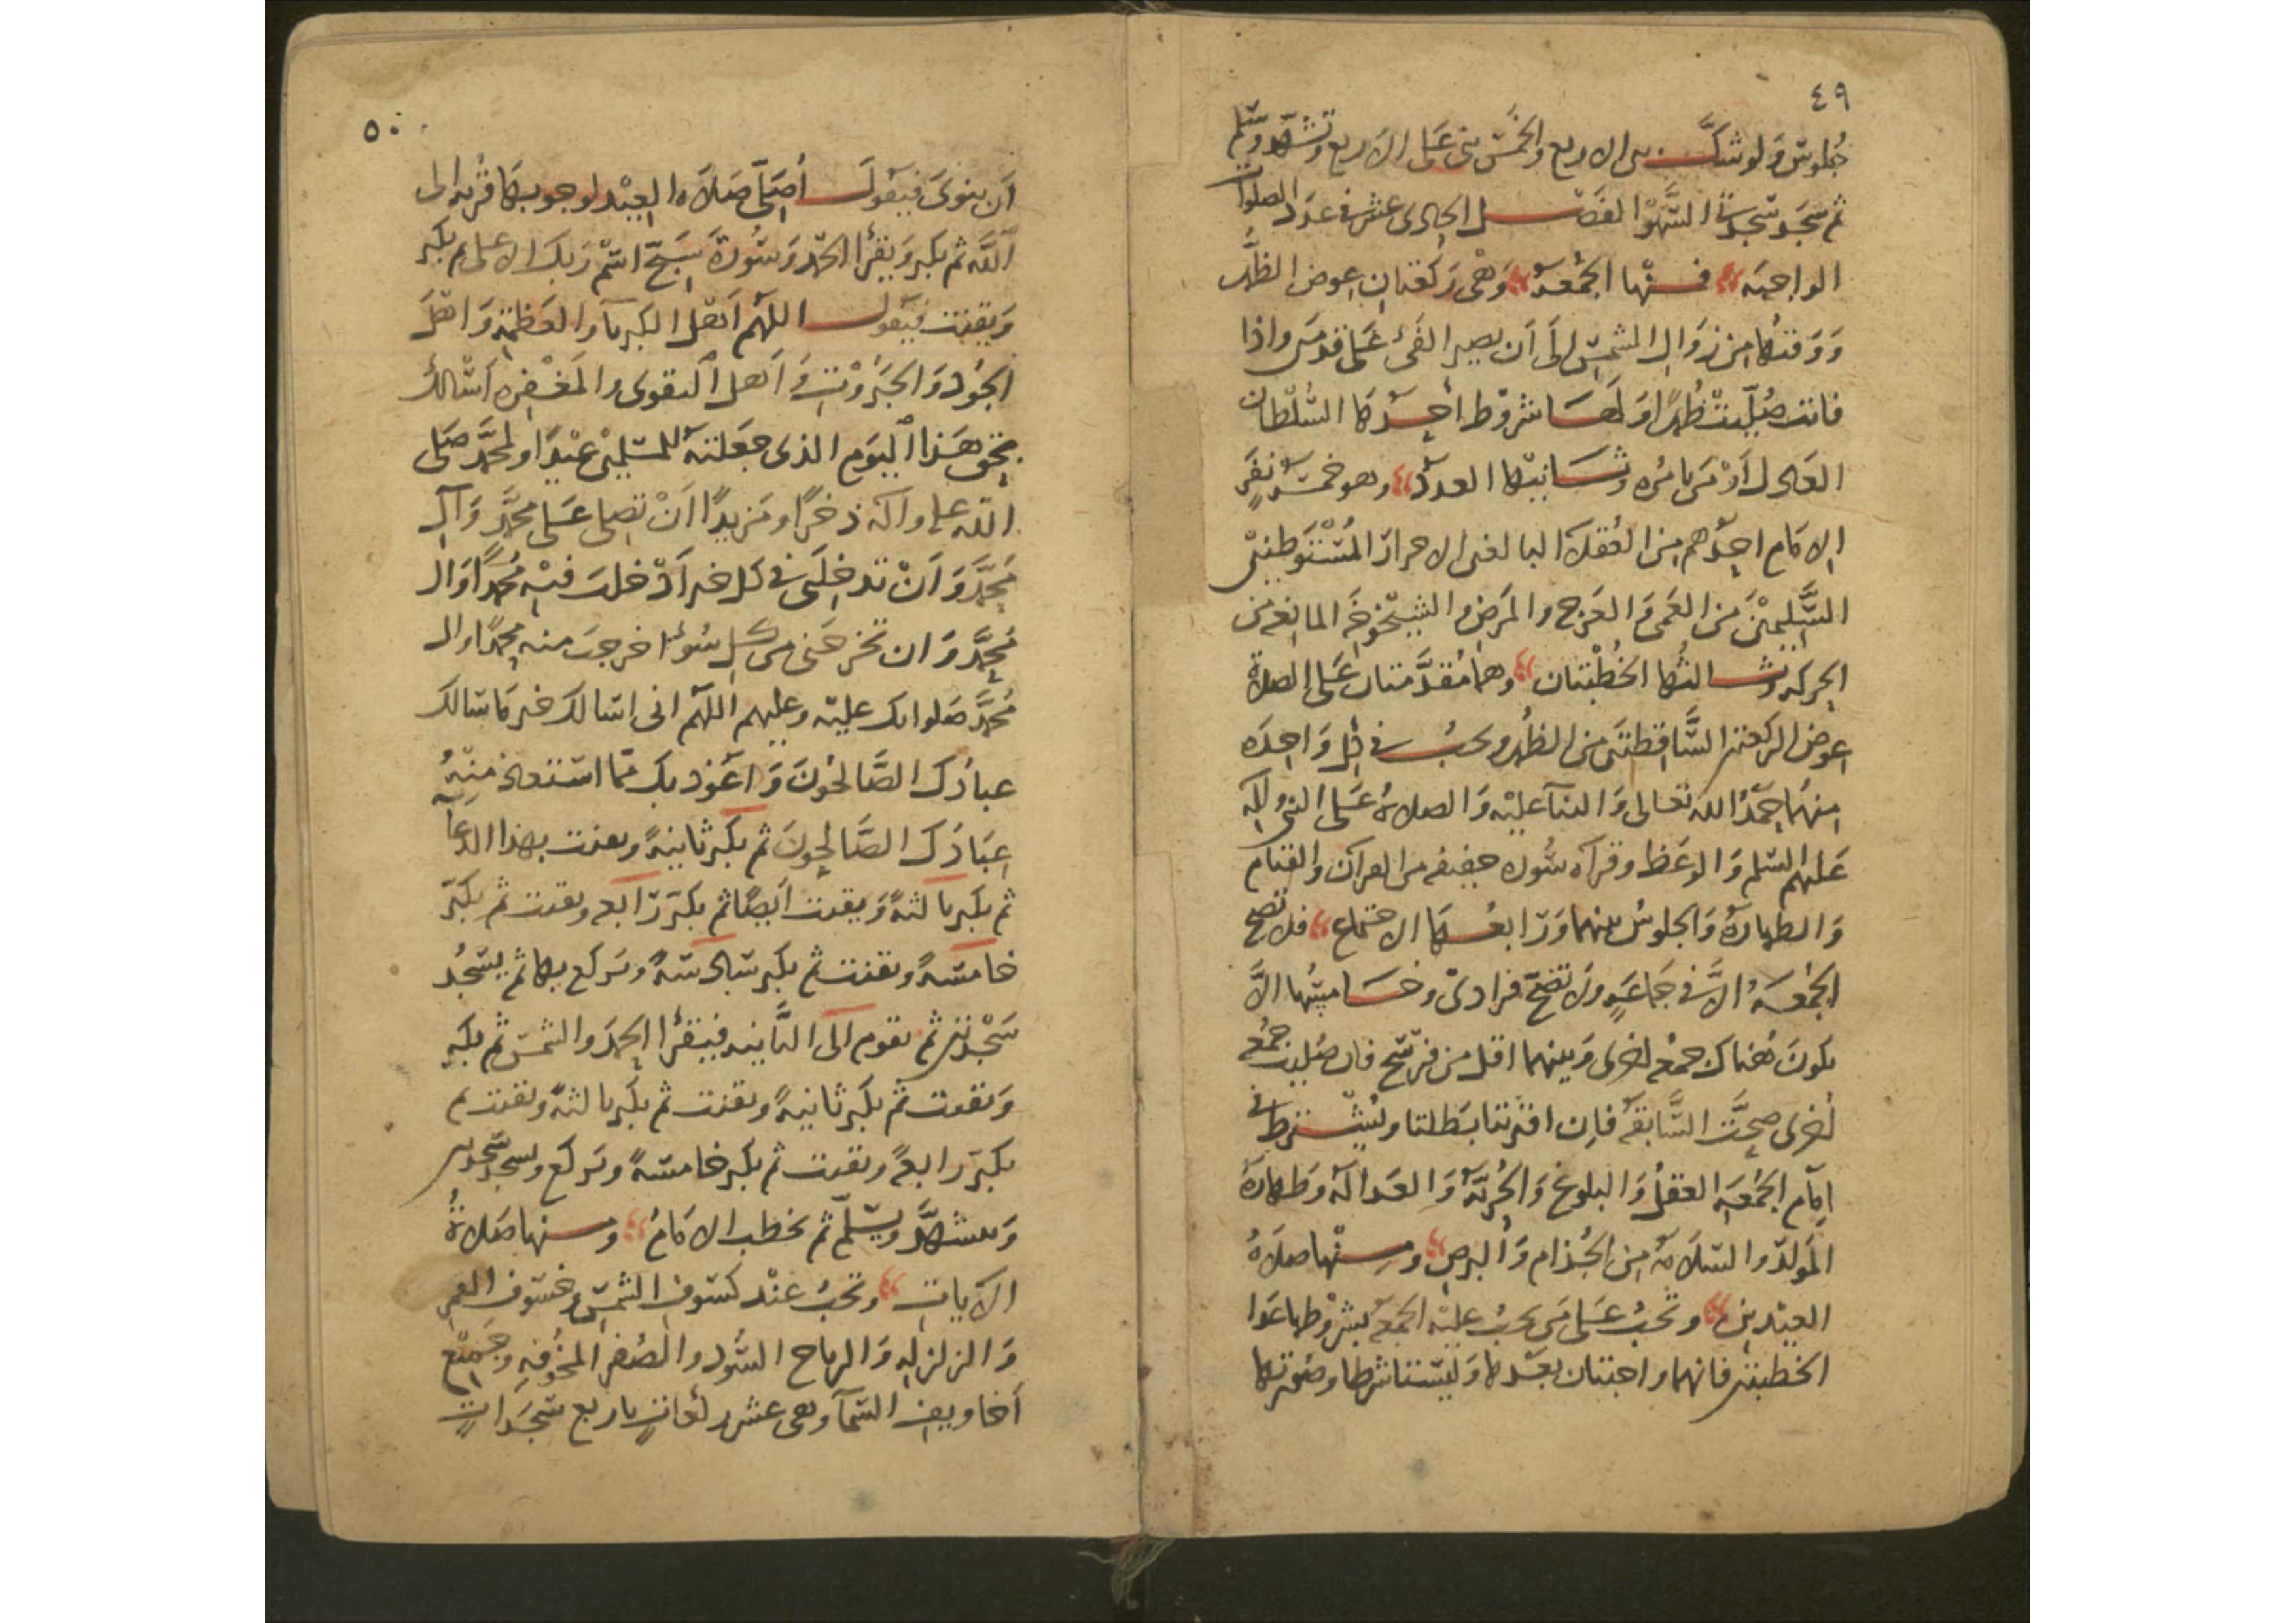 ٤٩
جلوس ولو شك بين الاربع والخمس بنى على الاربع وتشهد وسلم
ثم سجد سجدتي السهو الفصل الحادى عشر في عدد الصلوات
الواجبه فمنها الجمعة وهى ركعتان عوض الظهر
ووقتها من زوال الشمس الى أن يصير الفئ على قدمين واذا
فاتت صليت ظهرا ولها شروط أحدها السلطان
العادل أو من يامره وثانيها العدد وهو خمسة نفر
الامام احدهم من العقلاء البالغين الاحرار المستوطنين
السليمين من العمى والعرج والمرض والشيخوخة المانعة من
الحركة وثالثها الخطبتان وهما مقدمتان على الصلاة
عوض الركعتين الساقطتين من الظهر ويجب في كل واحده
منهما حمد الله تعالى والثنآ عليه والصلاة على النبي وآله
عليهم السلم والوعظ وقرآه سوره خفيفه من القرآن والقيام
والطهارة والجلوس بينهما ورابعها الاجتماع فلا تصح
الجمعة الا في جماعة ولا تصح فرادى وخامستها الا
يكون هناك جمعه اخرى وبينهما اقل من فرسخ فان صليت جمعه
أخرى صحت السابقه فان اقترنتا بطلتا ويشترط في
امام الجمعه العقل والبلوغ والحرية والعدالة وطهارة
المولد والسلامة من الجذام والبرص ومنها صلاة
العيدين وتجب على من يجب عليه الجمعة بشروطها عدا
الخطبتين فانهما واجبتان بعدها وليستا شرطا وصورتها
٥٠
أن ينوى فيقول أصلى صلاة العيد لوجوبها قربه الى
الله ثم يكبر ويقرأ الحمد وسورة سبح اسم ربك الاعلى ثم يكبر
ويقنت فيقول اللهم أهل الكبريآء والعظمة وأهل
الجود والجبروت وأهل التقوى والمغفره أسالك
بحق هذا اليوم الذى جعلته للمسلمين عيدا ولمحمد صلى
الله عليه وآله ذخرا ومزيدا أن تصلى على محمد وآل
محمد وأن تدخلنى في كل خير أدخلت فيه محمدا وال
محمد وان تخرجنى من كل سوء اخرجت منه محمدا وال
محمد صلواتك عليه وعليهم اللهم انى اسالك خير ما سالك
عبادك الصالحون وأعوذ بك مما استعاذ منه
عبادك الصالحون ثم يكبر ثانية ويقنت بهذا الدعآ
ثم يكبر ثالثة ويقنت أيضا ثم يكبر رابعه ويقنت ثم يكبر
خامسة ويقنت ثم يكبر سادسة ويركع بها ثم يسجد
سجدتين ثم يقوم الى الثانيه فيقرأ الحمد والشمس ثم يكبر
ويقنت ثم يكبر ثانية ويقنت ثم يكبر ثالثة ويقنت ثم
يكبر رابعة ويقنت ثم يكبر خامسة ويركع ويسجد سجدتين
ويتشهد ويسلم ثم يخطب الامام ومنها صلاة
الآيات وتجب عند كسوف الشمس وخسوف القمر
والزلزله والرياح السود والصفر المخوفه وجميع
أخاويف السمآء وهى عشر ركعات باربع سجدات